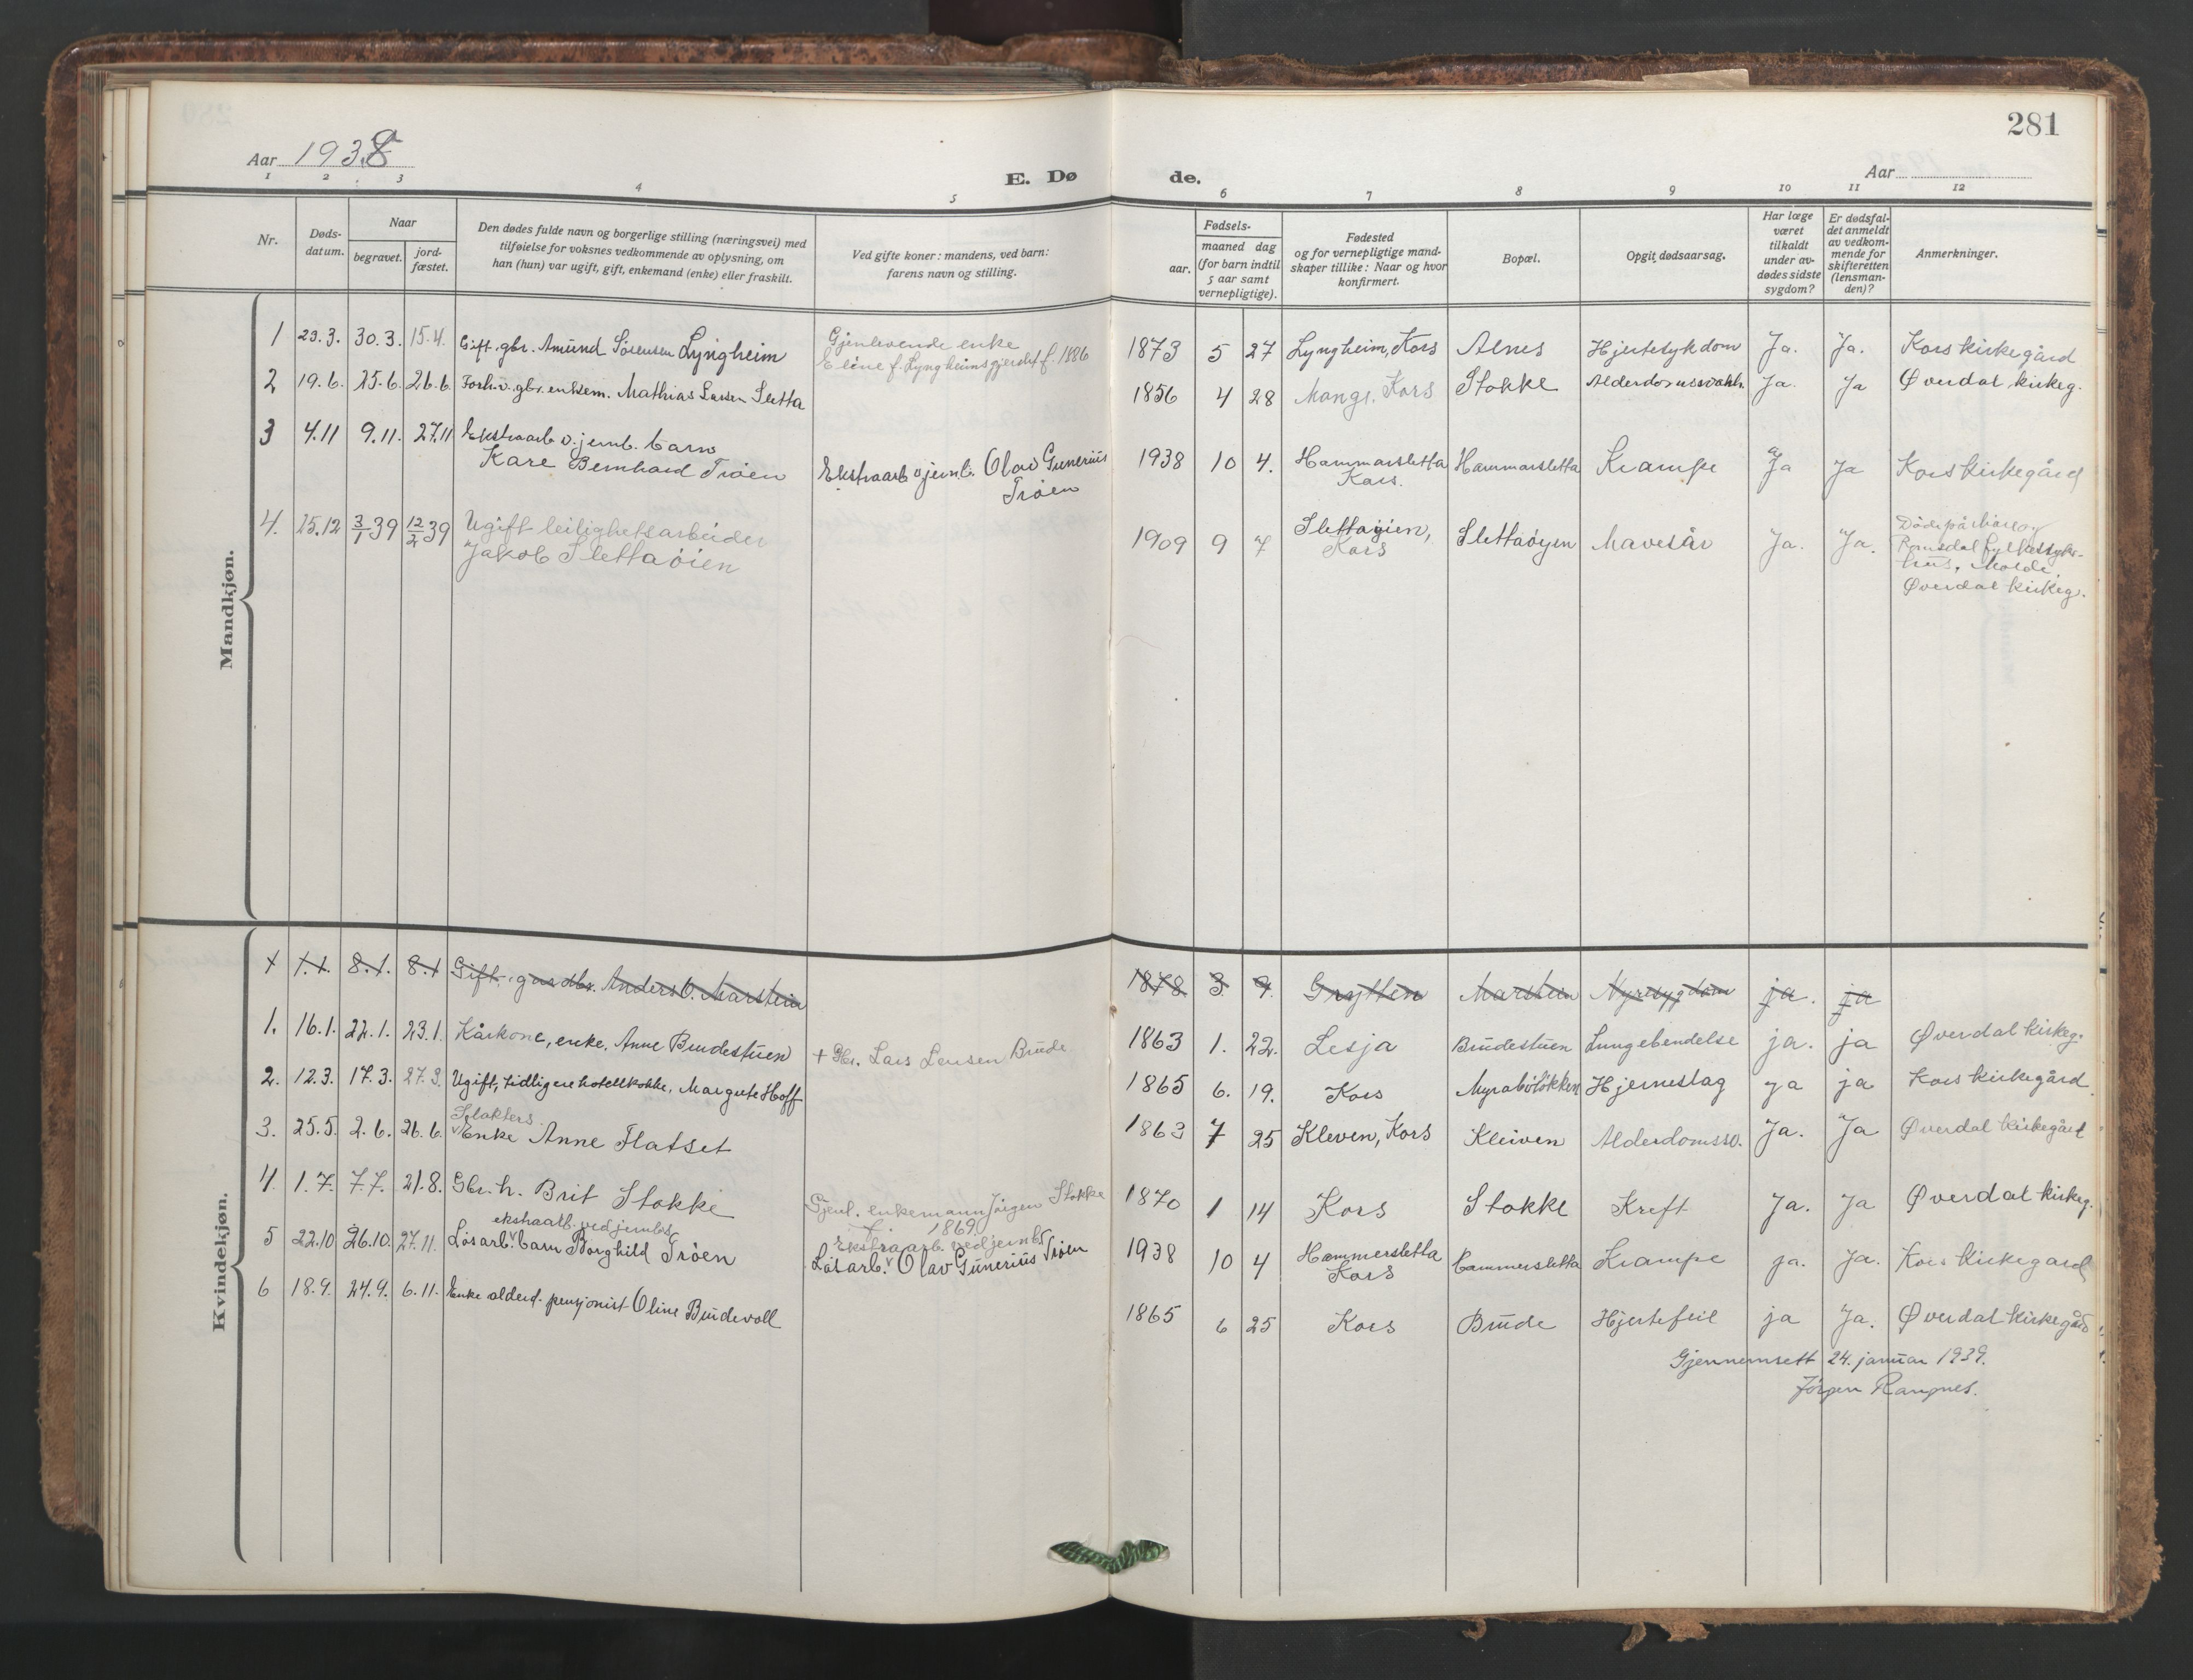 281
Aar 1938
E. Døde.
Aar
1 2 3 4 5 6 7 8 9 10 11 12
Nr.
Døds-
datum.
Naar
begravet.
jord-
fæstet.
Den dødes fulde navn og borgerlige stilling (næringsvei) med
tilføielse for voksnes vedkommende av oplysning, om
han (hun) var ugift, gift, enkemand (enke) eller fraskilt.
Ved gifte koner: mandens, ved barn:
farens navn og stilling.
Fødsels-
aar.
maaned dag
(for barn indtil
5 aar samt
vernepligtige).
Fødested
og for vernepligtige mand-
skaper tillike: Naar og hvor
konfirmert.
Bopæl.
Opgit dødsaarsag.
Har læge
været
tilkaldt
under av-
dødes sidste
sygdom?
Er dødsfal-
det anmeldt
av vedkom-
mende for
skifteretten
(lensman-
den)?
Anmerkninger.
Mandkjøn.
1 23.3. 30.3. 15.4. Gift. gbr. Amund Sørensen Lyngheim
Gjenlevende enke
Eline f. Lyngheimsgjerdet f. 1886
1873 5 27 Lyngheim, Kors Alnes Hjertesykdom Ja. Ja. Kors kirkegård
2 19.6. 25.6. 26.6. Forh.v. gbr. enkem. Mathias Larsen Sletta
1856 4 28 Kors Stokke Ja. Ja Øverdal kirkeg.
3 4.11 9.11. 27.11 Ekstraarb v. jernb. barn
Kåre Bernhard Trøen
Ekstraarb v. jernb. Olav Gunerius
Trøen
1938 10 4. Hammarsletta
Kors.
Hammarsletta Krampe Ja Ja Kors kirkegård
4. 25.12 3/1 39 12/2 39 Ugift leilighetsarbeider
Jakob Slettaøien
1909 9 7 Slettaøien,
Kors
Slettaøyen Mavesår Ja. Ja.
Døde på Møre og
Romsdal fylkessyke-
hus, Molde.
Øverdal kirkeg.
Kvindekjøn.
1 1.1. 8.1. 8.1 Gift. gardbr. Anders O. Marstein
1878 3. 9. Grytten Marstein Nyresygdom ja. ja
1. 16.1. 22.1. 23.1. Kårkone, enke, Anne Brudestuen
+ Gbr. Lars Larsen Brude
1863 1. 22. Lesja Brudestuen Lungebendelse ja. ja Øverdal kirkeg.
2. 12.3. 17.3. 27.3. Ugift, tidligere hotellkokke, Margrete Hoff
1865 6. 19. Kors Myrabøløkken Hjerneslag ja ja Kors kirkegård.
Slakters
3. 25.5. 2.6. 26.6. Enke Anne Flatset
1863 7 25 Kleven, Kors Kleiven Alderdomssv. Ja. Ja Øverdal kirkegård
4. 1.7. 7.7. 21.8. Gbr. h. Brit Stokke
Gjenl. enkemann Jørgen Stokke
f. 1869.
1870 1 14 Kors Stokke Kreft Ja. Ja Øverdal kirkeg.
ekstraarb. ved jernb.
5 22.10 26.10. 27.11. Løsarb. barn Borghild Trøen
Ekstraarb. ved jernb.
Løsarb. Olav Gunerius Trøen
1938 10 4 Hammersletta
Kors
Hammersletta Krampe ja. Ja. Kors kirkegard
6 18.9. 24.9. 6.11. Enke alderd. pensjonist Oline Brudevoll
1865 6 25 Kors Brude Hjertefeil ja Ja. Øverdal kirkegård
Gjennemsett 24. januar 1939.
Jørgen Rangnes.